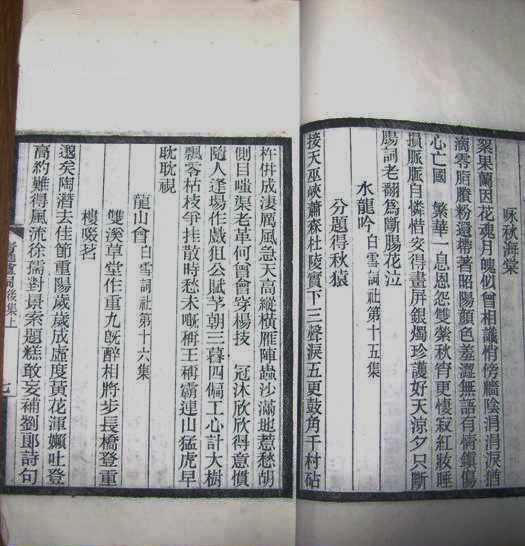 咏秋海棠
絮果蘭因花魂月魄似曾相識悄傍牆陰涓涓淚猶
滴零脂賸粉還帶著昭陽顏色羞澀無語有情鎮傷
心亡國　繁華一息恩怨雙縈秋宵更悽寂紅妝睡
損脈脈自憐惜安得畫屏銀燭珍護好天涼夕只斷
腸詞老翻爲斷腸花泣
水龍吟白雪詞社第十五集
分題得秋猿
接天巫峽蕭森杜陵實下三聲淚五更鼓角千村砧
杵并成淒厲風急天高縱橫雁陣蟲沙滿地惹愁胡
側目嗤渠老革何曾會穿楊技　冠沐欣欣得意慣
隨人逢場作戲狙公賦芧朝三暮四偏工心計大樹
飄零枯枝爭挂散時愁未嘶稱王稱霸連山猛虎早
耽耽視
龍山會白雪詞社第十六集
雙溪草堂作重九旣醉相將步長橋登重
樓啜茗
邈矣陶潛去佳節重陽歲歲成虛度黃花渾嬾吐登
高約難得風流徐孺對景索題糕敢妄補劉郎詩句
詞後集上
三